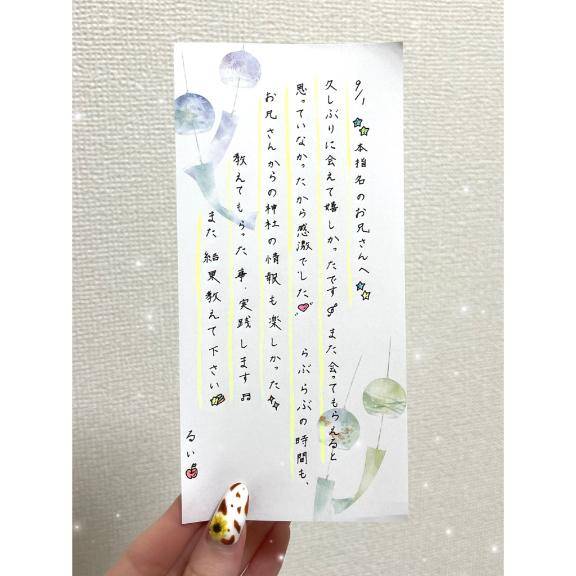 9/1 本指名のお兄さんへ
久しぶりに会えて嬉しかったです また会ってもらえると
思っていなかったから感激でした らぶらぶの時間も、
お兄さんからの神社の情報も楽しかった
教えてもらった事、実践します♬
また結果教えて下さい
るい